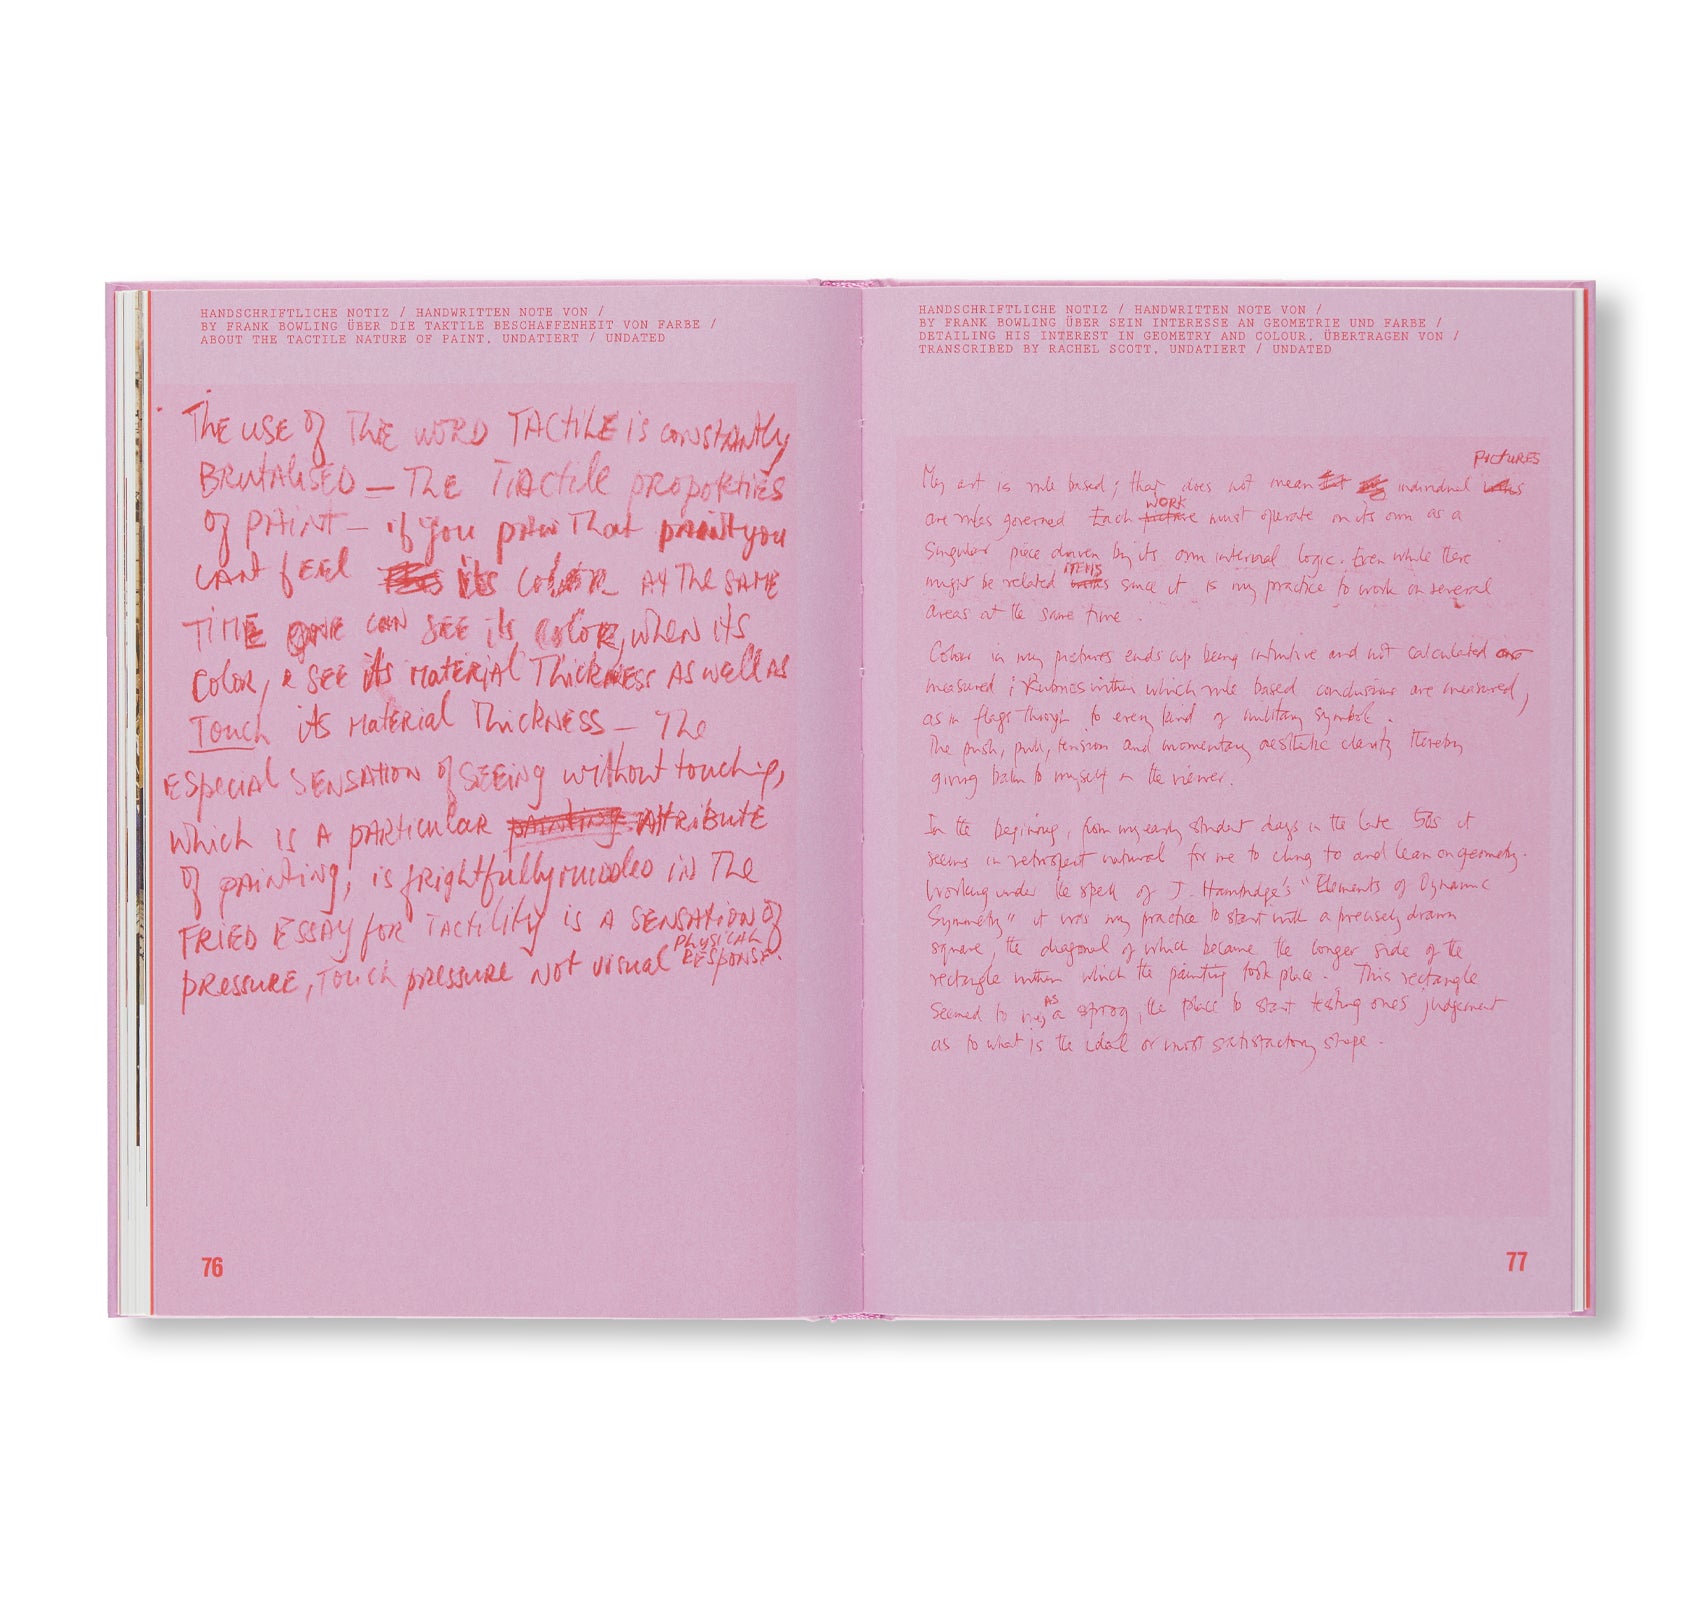 HANDSCHRIFTLICHE NOTIZ / HANDWRITTEN NOTE VON /
BY FRANK BOWLING ÜBER DIE TAKTILE BESCHAFFENHEIT VON FARBE /
ABOUT THE TACTILE NATURE OF PAINT, UNDATIERT / UNDATED
The use of The WORD TACtiLE is constantly
BRutaliSED — The Tactile propoRties
of PAiNT — if you paw That paint you
CANt feel its COLOR At The SAME
TIME ONE CAN SEE its COLOR, when its
COLOR, & SEE its MATERIAL ThickNess AS well AS
Touch its MATERIAL ThickNESS — The
especial SENSATION of SEEing without touching,
which is A pARticular painting AttRiBUTE
of pAiNting, is frightfully muddled in The
FRIED ESSAY for TACtiLity is A SENSATiON of
pRessURE, Touch pRessuRE Not visual PHYSICAL
RESPONSE.
76
HANDSCHRIFTLICHE NOTIZ / HANDWRITTEN NOTE VON /
BY FRANK BOWLING ÜBER SEIN INTERESSE AN GEOMETRIE UND FARBE /
DETAILING HIS INTEREST IN GEOMETRY AND COLOUR, ÜBERTRAGEN VON /
TRANSCRIBED BY RACHEL SCOTT, UNDATIERT / UNDATED
PICTURES
My art is rule based; that does not mean individual
WORK
are rules governed Each picture must operate on its own as a
Singular piece driven by its own internal logic. Even while there
ITEMS
might be related since it is my practice to work on several
areas at the same time.
Colour in my pictures ends up being intuitive and not calculated or
measured; Rubrics within which rule based conclusions are measured,
as in flags through to every kind of military symbol.
The push, pull, tension and momentary aesthetic clarity thereby
giving balm to myself or the viewer.
In the begining, from my early student days in the late 50s it
seems in retrospect natural for me to cling to and lean on geometry.
Working under the spell of J. Hambidge's "Elements of Dynamic
Symmetry" it was my practice to start with a precisely drawn
square, the diagonal of which became the longer side of the
rectangle within which the painting took place. This rectangle
AS
Seemed to me, a sprog, the place to start testing ones judgement
as to what is the ideal or most satisfactory shape.
77